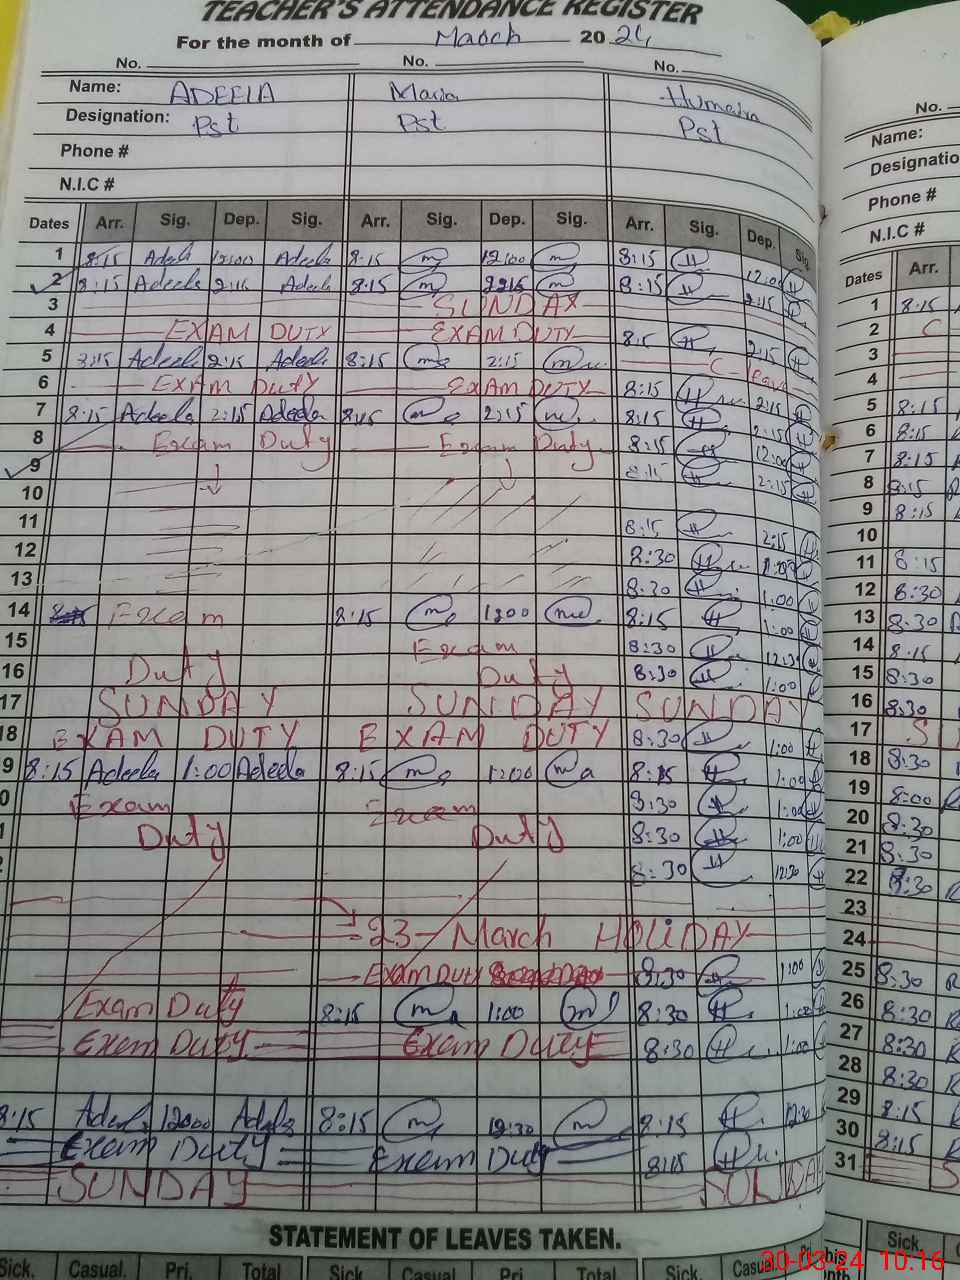 TEACHER'S ATTENDANCE REGISTER
For the month of March 2024
No. No. No.
Name: ADEELA Maria Humaira
Designation: Pst Pst Pst
Phone #
N.I.C #
Dates Arr. Sig. Dep. Sig. Arr. Sig. Dep. Sig. Arr. Sig. Dep. Sig.
1 8:15 Adeela 12:00 Adeela 8:15 m 12:00 m 8:15 H 12:00 H
2 8:15 Adeela 2:15 Adeela 8:15 m 2215 m 8:15 H 2:15 H
3 SUNDAY
4 EXAM DUTY EXAM DUTY 8:15 H 2:15 H
5 8:15 Adeela 2:15 Adeela 8:15 2:15 C-leave
6 EXAM DUTY EXAM DUTY 8:15 H 2:15 H
7 8:15 Adeela 2:15 Adeela 8:15 2:15 8:15 H 2:15 H
8 Exam Duty Exam Duty 8:15 H 12:00 H
9 8:15 H 2:15 H
10
11 8:15 H 2:15 H
12 8:30 H
13 8:30 H 1:00 H
14 Exam 8:15 1200 8:15 H 1:00 H
15 Exam 8:30 H 12:30
16 Duty Duty 8:30 H 1:00
17 SUNDAY SUNDAY SUNDAY
18 EXAM DUTY EXAM DUTY 8:30 H 1:00 H
9 8:15 Adeela 1:00 Adeela 8:15 1:00 8:15 H 1:00
0 Exam Exam 8:30 H 1:00 H
1 Duty Duty 8:30 H 1:00
2 8:30 H 12:30 H
23 - March HOLIDAY
Exam Duty 8:30 H 1:00
Exam Duty 8:15 1:00 8:30 H 1:00
Exam Duty Exam Duty 8:30 H 1:00
8:15 Adeela 12000 Adeela 8:15 12:30 8:15 H 12:30
Exam Duty Exam Duty 8:15 H
SUNDAY SUNDAY
STATEMENT OF LEAVES TAKEN.
Sick. Casual. Pri. Total Sick. Casual. Pri. Total Sick. Casual.
No.
Name:
Designatio
Phone #
N.I.C #
Dates Arr.
1 8:15
2 C
3
4
5 8:15
6 8:15
7 8:15
8 8:15
9 8:15
10
11 8:15
12 8:30
13 8:30
14 8:15
15 8:30
16 8:30
17 S
18 8:30
19 8:00
20 8:30
21 8:30
22 8:30
23
24
25 8:30
26 8:30
27 8:30
28 8:30
29 8:15
30 8:15
31 S
Sick.
30-03-24 10:16